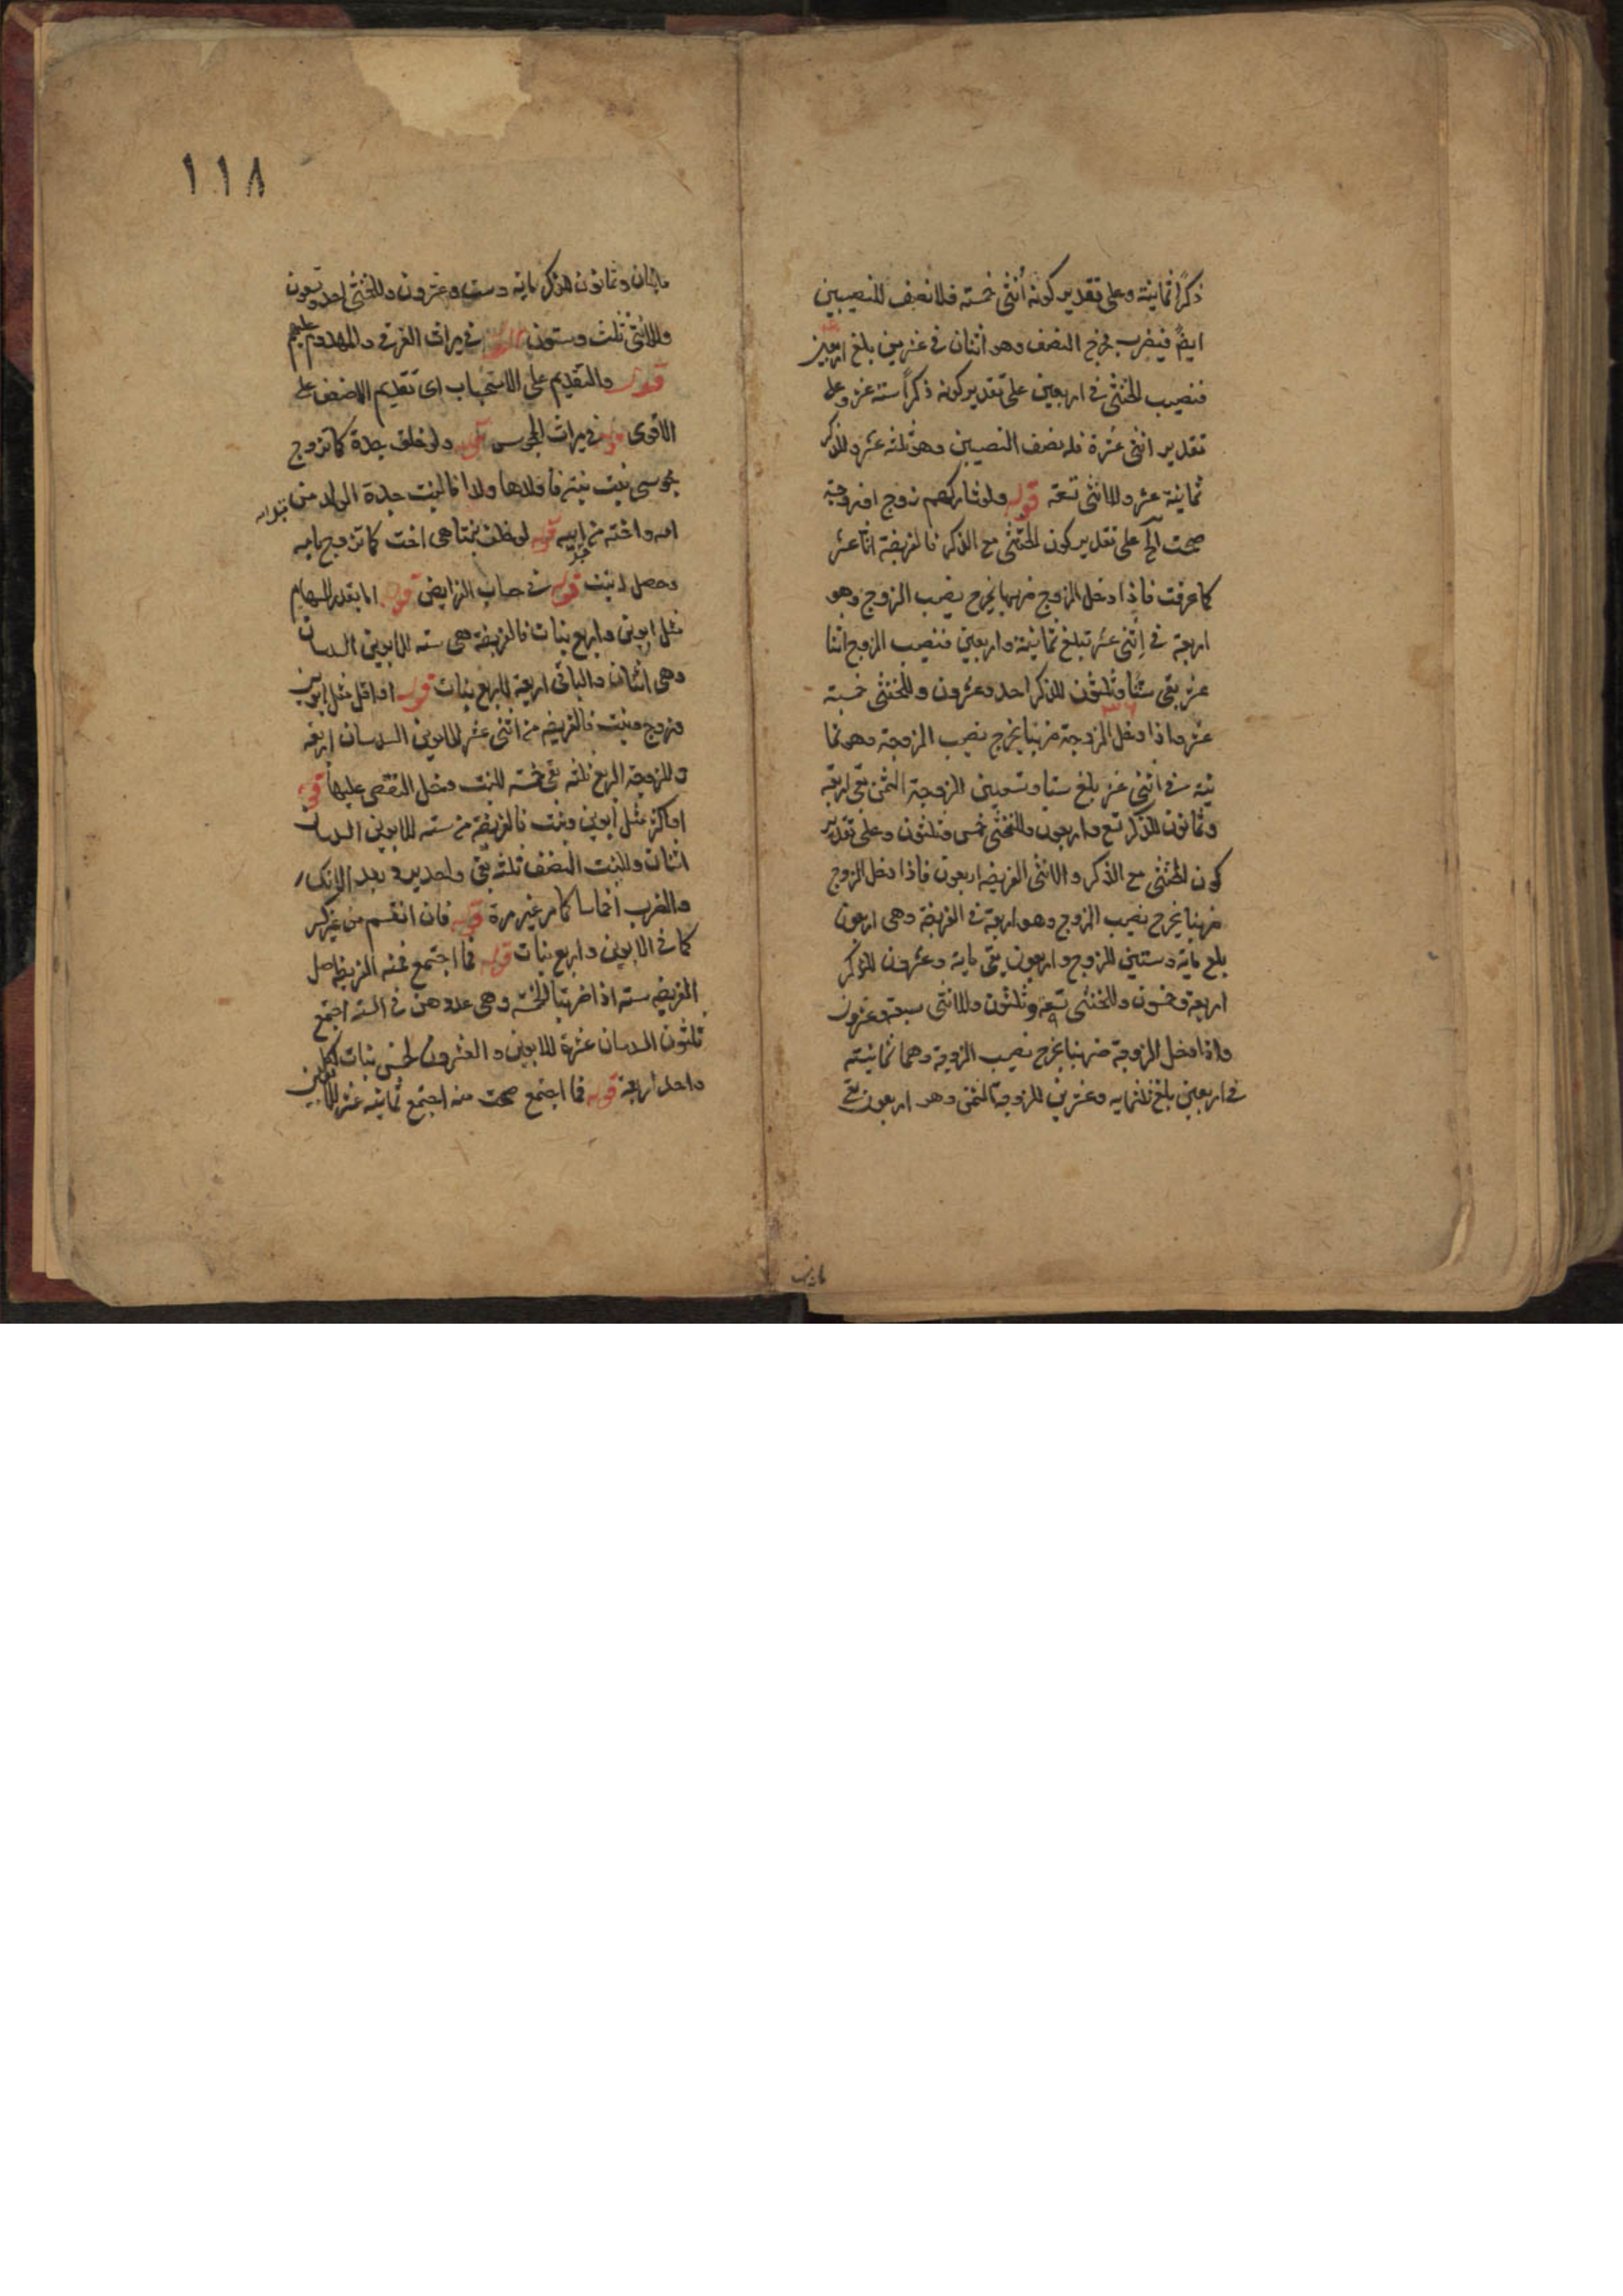 ذكراً ثمانية وعلى تقدير كونه أنثى خمسة فلا نصف للنصيبين
ايضً فيضرب مخرج النصف وهو اثنان في عشرين بلغ اربعين
فنصيب الخنثى في اربعين على تقدير كونه ذكراً ستة عشر وعلى
تقدير انثى عشرة فله نصف النصيبين وهو ثلثة عشر وللذكر
ثمانية عشر وللانثى تسعة قوله ولو شاركهم زوج او زوجة
صحت آلخ على تقدير كون الخنثى مع الذكر فالفريضة اثنا عشر
كما عرفت فاذا دخل الزوج ضربها مخرج نصيب الزوج وهو
اربعة في اثنى عشر تبلغ ثمانية واربعين فنصيب الزوج اثنا
عشر بقى ستا وثلثون للذكر احد وعشرون وللخنثى خمسة
عشر واذا دخل الزوجة ضربنا مخرج نصيب الزوجة وهو ثما
نية في اثنى عشر بلغ ستا وتسعين للزوجة الثمن بقى اربعة
وثمانون للذكر تسع واربعون وللخنثى خمس وثلثون وعلى تقدير
كون الخنثى مع الذكر والانثى الفريضة اربعون فاذا دخل الزوج
ضربنا مخرج نصيب الزوج وهو اربعة في الفريضة وهى اربعون
بلغ ماية وستين للزوج واربعون بقى ماية وعشرون للذكر
اربعة وخمسون وللخنثى تسعة وثلثون وللانثى سبعة وعشرون
واذا دخل الزوجة ضربنا مخرج نصيب الزوجة وهما ثمانية
في اربعين بلغ ثلثماية وعشرين للزوجة الثمن وهو اربعون بقى
١١٨
مايتان وثمانون للذكر ماية وست وعشرون وللخنثى احد وتسعون
وللانثى ثلث وستون في ميراث الغرقى والمهدوم عليهم
قوله والتقديم على الاستحباب اى تقديم الاضعف على
الاقوى قوله في ميراث المجوس قوله ولو خلف جدة كما تزوج
مجوسى بنت بنته فاولدها ولدا فالبنت جدة الولد من
امه واخته من ابيه قوله لو خلف بنتا هى اخت كما تزوج بامه
وحصل له بنت قوله في حساب الفرايض قوله اما بقدر السهام
مثل ابوين واربع بنات فالفريضة هى سته للابوين السدسان
وهى اثنان والباقى اربعة للاربع بنات قوله او اقل مثل ابوين
وزوج وبنت فالفريضه من اثنى عشر للابوين السدسان اربعه
وللزوجة الربع ثلثه بقى خمسه للبنت ودخل النقص عليها قوله
او اكثر مثل ابوين وبنت فالفريضة من سته للابوين السدسان
اثنان وللبنت النصف ثلثه بقى واحد يرد بعد الانكسار
والضرب اخماسا كما مر غير مرة قوله فان انقسم من غير كسر
كما في الابوين واربع بنات قوله فما اجتمع فمنه الفريضة اصل
الفريضه سته اذا ضربنا الخمسه وهى عددهن في السته اجتمع
ثلثون السدسان عشرة للابوين والعشرون لخمس بنات لكل
واحد اربعة قوله فما اجتمع صحت منه اجتمع ثمانيه عشر للابوين